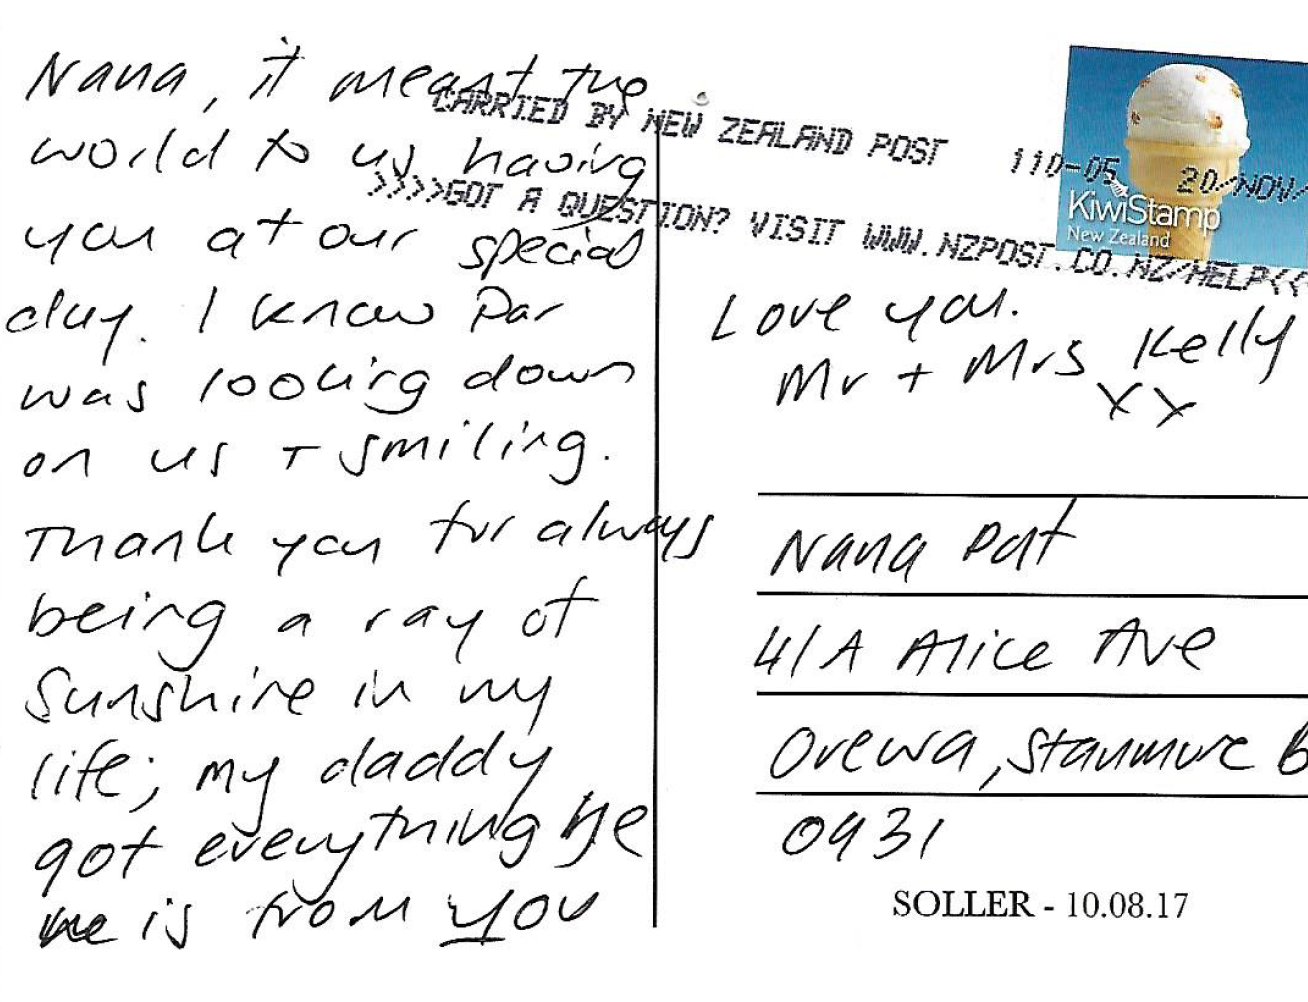 Nana, it meant the
world to us having
you at our special
day. I know Par
was looking down
on us + smiling.
Thank you for always
being a ray of
Sunshine in my
life; my daddy
got everything he
is from you
CARRIED BY NEW ZEALAND POST 110-05 20/NOV/
>>>>GOT A QUESTION? VISIT WWW.NZPOST.CO.NZ/HELP<<
KiwiStamp
New Zealand
Love you.
Mr + Mrs Kelly
xx
Nana Pat
4/A Alice Ave
Orewa, Stanmore B
0931
SOLLER - 10.08.17